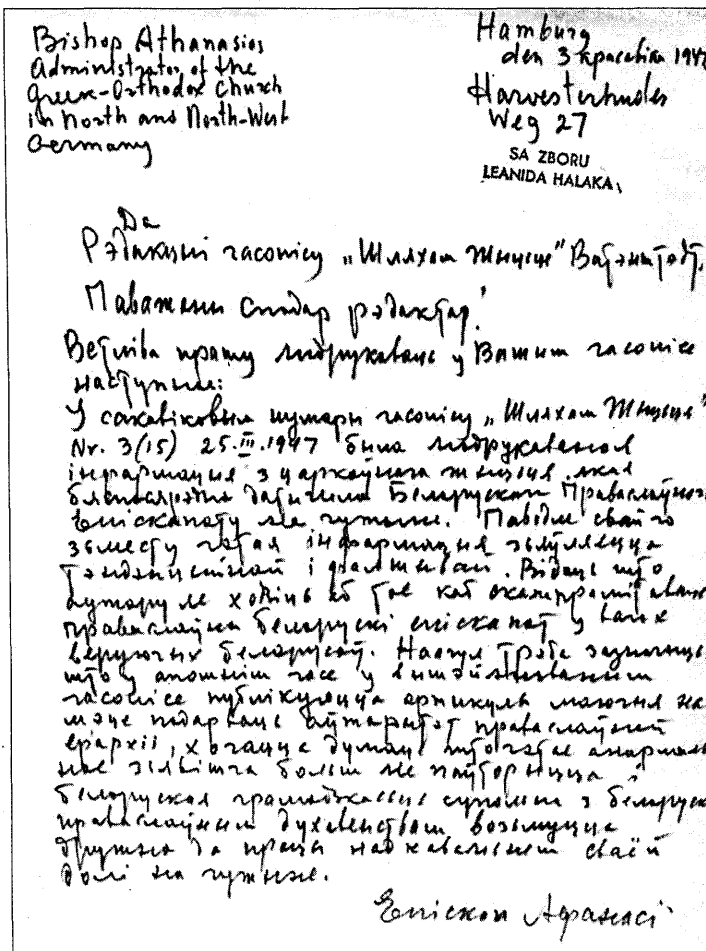 Bishop Athanasios
Administrator of the
Greek-Orthodox Church
in North and North-West
Germany
Hamburg
den 3 красавіка 1947
Harvestehuder
Weg 27
SA ZBORU
LEANIDA HALAKA
Да
Рэдакцыі часопісу „Шляхам Жыцця" Ватэнштэдт.
Паважаны спадар рэдактар!
Ветліва прашу надрукаваць у Вашым часопісе
наступнае:
У сакавіковым нумары часопісу „Шляхам Жыцця"
Nr. 3(15) 25.III.1947 была надрукаваная
інфармацыя з царкоўнага жыцця, якая
бяспасярэдна датычыла Беларускай Праваслаўнай
Епіскапату на чужыне. Паводле свайго
зьместу гэтая інфармацыя зьяўляецца
тэндэнцыйнай і фальшывай. Відаць што
аўтару ходзіць аб тое каб скампрамітаваць
праваслаўны беларускі епіскапат у вачох
веруючых беларусаў. Наагул трэба зазначыць
што у апошнім часе у вышэй
часопісе публікуюцца артыкулы маючыя на
мэце падарваць аўтарытэт праваслаўнай
ерархіі, хочацца думаць што гэтае анармаль-
нае зьявішча больш не паўторыцца і
беларускае грамадзтва супольна з беларускім
праваслаўным духавенствам возьмуцца
дружна да працы над каваньнем сваей
долі на чужыне.
Епіскап Афанасі